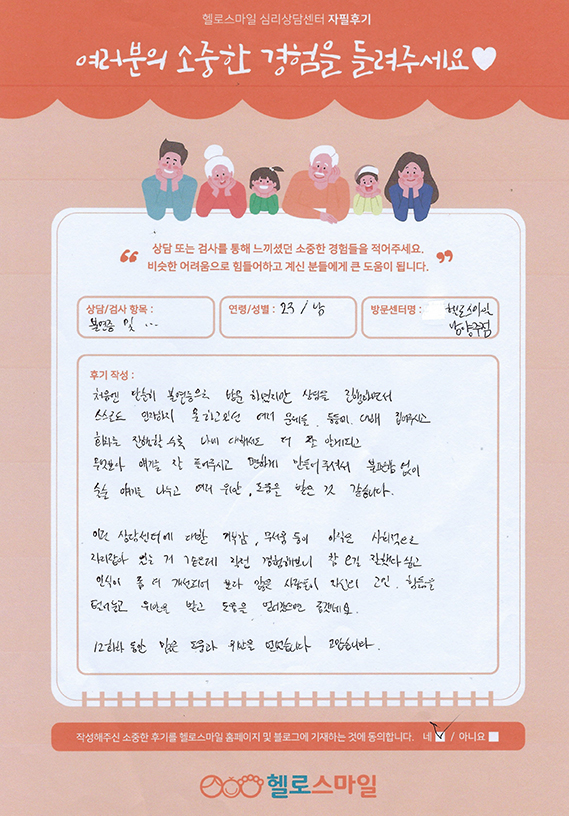 헬로스마일 심리상담센터 자필후기
여러분의 소중한 경험을 들려주세요
상담 또는 검사를 통해 느끼셨던 소중한 경험들을 적어주세요.
비슷한 어려움으로 힘들어하고 계신 분들에게 큰 도움이 됩니다.
상담/검사 항목 :
불면증 및 ...
연령/성별 : 23 / 남
방문센터명 : 헬로스마일
남양주점
후기 작성 :
처음엔 단순히 불면증으로 방문 하였지만 상담을 진행하면서
스스로도 인지하지 못하고있던 여러 문제들, 등등에 대해 집어주시고
회차를 진행할 수록 나에 대해서도 더 잘 알게되고
무엇보다 얘기를 잘 들어주시고 편하게 만들어 주셔서 불편함 없이
술술 얘기를 나누고 여러 위안, 도움을 받은 것 같습니다.
이런 상담센터에 대한 거부감, 무서움 등이 아직은 사회적으로
자리잡아 있는 거 같은데 직접 경험해보니 참 오길 잘했다 싶고
인식이 좀 더 개선되어 보다 많은 사람들이 자신의 고민, 힘듦을
털어놓고 위안을 받고 도움을 얻어갔으면 좋겠네요.
12회차 동안 많은 도움과 위안을 얻었습니다 고맙습니다.
작성해주신 소중한 후기를 헬로스마일 홈페이지 및 블로그에 기재하는 것에 동의합니다. 네 / 아니요
헬로스마일